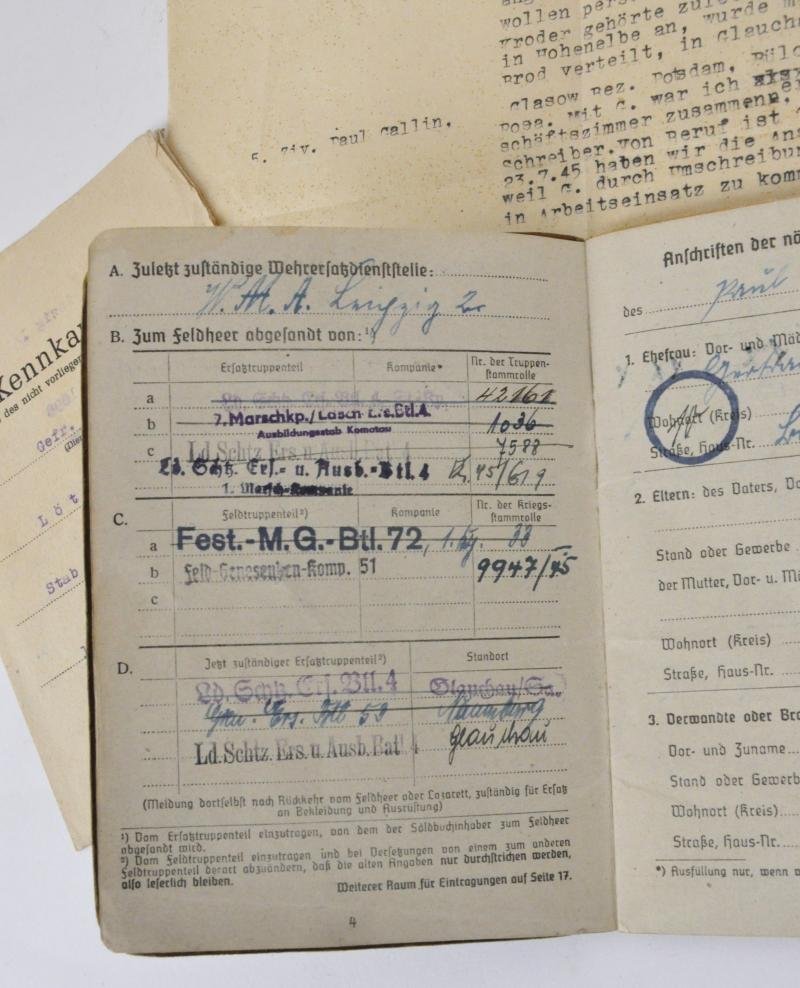 wollen
Kroder gehörte
in Hohenelbe an, wurde
Brod verteilt, in Glaucha
Glasow Bez. Potsdam,
Rosa. Mit G. war ich
schäftszimmer zusammen.
schreiber. Von Beruf ist
23.7.45 haben wir die
weil G. durch Umschreibun
in Arbeitseinsatz zu komm
5. Ziv. Paul Gallin.
Kennka
des nicht vorliegen
Gefr.
Löt
Stab
A. Zuletzt zuständige Wehrersatzdienststelle:
W. M. A. Leipzig 2
B. Zum Feldheer abgesandt von:¹)
Ersatztruppenteil Kompanie* Nr. der Truppen-
stammrolle
a 42161
b 7. Marschkp./Lasch. Ers.Btl.4 1036
Ausbildungsstab Komotau
c Ld Schtz Ers u Ausb Batl 4 7588
Ld. Schtz. Ers.- u. Ausb.-Btl. 4 45/619
1. Marsch-Kompanie
C. Feldtruppenteil²) Kompanie Nr. der Kriegs-
stammrolle
a Fest.-M.G.-Btl. 72, 38
b Feld-Genesenden-Komp. 51 9947/45
c
D. Jetzt zuständiger Ersatztruppenteil²) Standort
Ld. Schtz. Ers. Btl. 4 Glauchau/Sa.
Gren. Ers. Btl 53 Naumburg
Ld. Schtz. Ers. u. Ausb. Batl 4 Glauchau
(Meldung dortselbst nach Rückkehr vom Feldheer oder Lazarett, zuständig für Ersatz
an Bekleidung und Ausrüstung)
¹) Vom Ersatztruppenteil einzutragen, von dem der Soldbuchinhaber zum Feldheer
abgesandt wird.
²) Vom Feldtruppenteil einzutragen und bei Versetzungen von einem zum anderen
Feldtruppenteil derart abzuändern, daß die alten Angaben nur durchstrichen werden,
also leserlich bleiben. Weiterer Raum für Eintragungen auf Seite 17.
4
Anschriften der nä
des Paul
1. Ehefrau: Vor- und Mäd
Wohnort (Kreis)
Straße, Haus-Nr.
2. Eltern: des Vaters, Vo
Stand oder Gewerbe
der Mutter, Vor- u. Mä
Wohnort (Kreis)
Straße, Haus-Nr.
3. Verwandte oder Bra
Vor- und Zuname
Stand oder Gewerb
Wohnort (Kreis)
Straße, Haus-Nr.
*) Ausfüllung nur, wenn